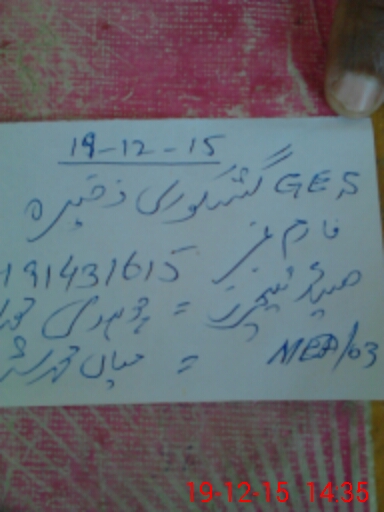 19-12-15
GES گشکوری ذخیرہ
فارم نمبر
191431615
ہیڈ ٹیچر = چوہدری
MEA/03 = میاں محمد
19-12-15 14:35